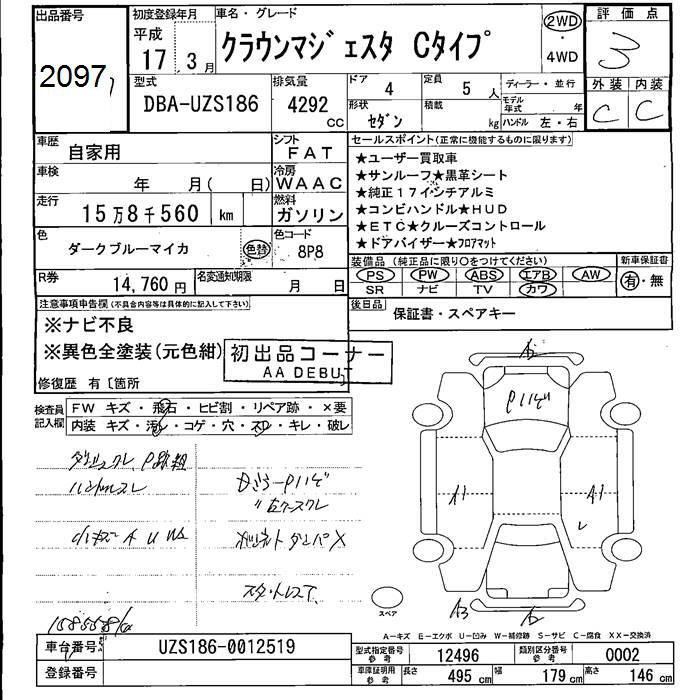 出品番号 初度登録年月 車名・グレード 2WD 評価点
2097 平成 17 3月 クラウンマジェスタ Cタイプ ・ 4WD 3
型式 排気量 ドア 4 定員 5人 ディーラー・並行 外装 内装
DBA-UZS186 4292 CC 形状 セダン 積載 kg モデル年式 年 ハンドル 左・右 C C
車歴 自家用 シフト FAT セールスポイント(正常に機能するものに限ります)
車検 年 月( 日) 冷房 WAAC ★ユーザー買取車
★サンルーフ★黒革シート
走行 15万8千560 km 燃料 ガソリン ★純正17インチアルミ
★コンビハンドル★HUD
色 ダークブルーマイカ 色替 色コード 8P8 ★ETC★クルーズコントロール
★ドアバイザー★フロアマット
R券 14,760円 名変通知期限 月 日 装備品(純正品に限り○をつけてください) 新車保証書
PS PW ABS エアB AW 有・無
SR ナビ TV カワ
注意事項申告欄(不具合内容等は具体的に記入して下さい) 後日品 保証書・スペアキー
※ナビ不良
※異色全塗装(元色紺) 初出品コーナー
AA DEBUT
修復歴 有〔箇所
検査員記入欄 FW キズ・飛石・ヒビ割・リペア跡・×要
内装 キズ・汚れ・コゲ・穴・スレ・キレ・破レ
A1 A1
スペア A3
A-キズ E-エクボ U-凹み W-補修跡 S-サビ C-腐食 XX-交換済
車台番号 UZS186-0012519 型式指定番号 参考 12496 類別区分番号 参考 0002
登録番号 車庫証明用 参考 長さ 495 cm 幅 179 cm 高さ 146 cm